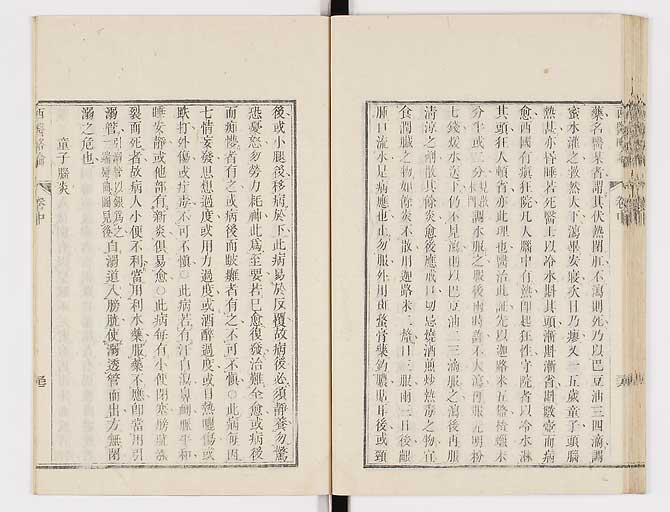 藥名醫某者謂其伏熱閉㿃不瀉則死乃以巴豆油三四滴調
蜜水灌之救然人下瀉畢安寢次日乃瘳又一五歲童子頭腦
熱甚亦昏睡若死醫士以冷水斟其頭漸斟漸省斟數壺而病
愈西國有瘋狂院凡人腦中有熱即起狂性守院者以冷水淋
其頭狂人頓省亦此理也醫治此証先以迦路米五釐撘蠟末
分半或二分調水服之服後兩時許不大瀉再服元明粉
七錢煖水送下仍不見瀉則以巴豆油二三滴服之瀉後再服
清涼之劑散其餘炎愈後應戒口切忌燒酒煎炒熱毒之物宜
食潤臟之物如餘炎不散用迦路米二釐日三服兩三日後齦
腫口流水是病應也止勿服外用斑蝥膏藥釣膿貼耳後或頸
後或小腿後移病於下此病易於反覆故病後必須靜養勿驚
恐憂怒勿勞力耗神此爲至要若已愈復發治難全愈或病後
而痴憃者有之或病後而跛癱者有之不可不愼○此病每因
七情妄發思想過度或用力過度或酒醉過度或日熱曬傷或
跌打外傷或疔毒不可不愼○此病若有汗自瀉鼻衄脈平和
睡安靜或他部有新炎俱易愈○此病每有小便閉塞膀胱漲
裂而死者故病人小便不利當用利水藥服藥不應卽當用引
溺管自溺道入膀胱使溺透管而出方無閉
引溺管以銀爲之一端彎曲圖見後
溺之危也
童子腦炎
西醫畧論
卷中